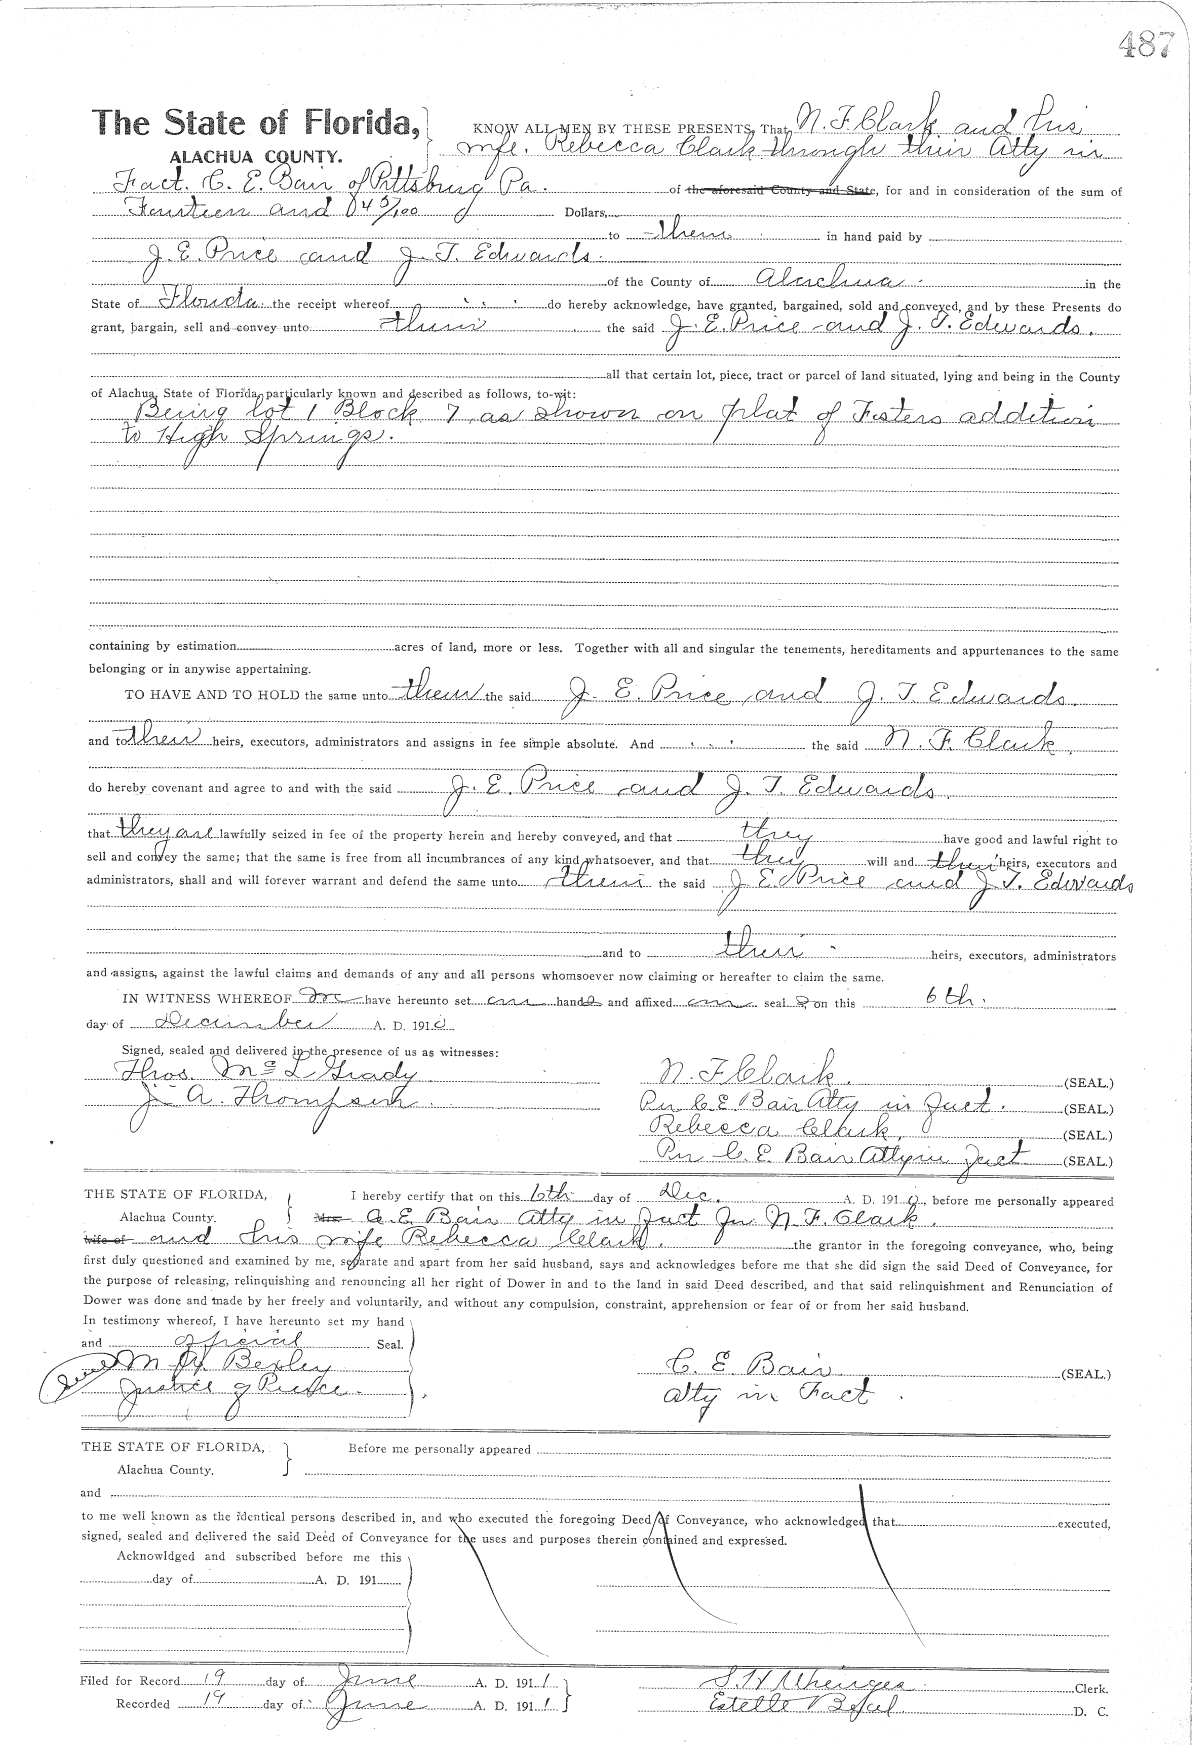 487
The State of Florida,
ALACHUA COUNTY.
KNOW ALL MEN BY THESE PRESENTS, That N. F. Clark and his
wife. Rebecca Clark through their Atty in
Fact. C. E. Bair of Pittsburg Pa. of the aforesaid County and State, for and in consideration of the sum of
Fourteen and 04 /100 Dollars,
to them in hand paid by
J. E. Price and J. T. Edwards.
of the County of Alachua in the
State of Florida the receipt whereof do hereby acknowledge, have granted, bargained, sold and conveyed, and by these Presents do
grant, bargain, sell and convey unto them the said J. E. Price and J. T. Edwards.
all that certain lot, piece, tract or parcel of land situated, lying and being in the County
of Alachua, State of Florida, particularly known and described as follows, to-wit:
Being lot 1 Block 7 as shown on plat of Fosters addition
to High Springs.
containing by estimation acres of land, more or less. Together with all and singular the tenements, hereditaments and appurtenances to the same
belonging or in anywise appertaining.
TO HAVE AND TO HOLD the same unto them the said J. E. Price and J. T. Edwards.
and to their heirs, executors, administrators and assigns in fee simple absolute. And the said N. F. Clark.
do hereby covenant and agree to and with the said J. E. Price and J. T. Edwards.
that they are lawfully seized in fee of the property herein and hereby conveyed, and that they have good and lawful right to
sell and convey the same; that the same is free from all incumbrances of any kind whatsoever, and that they will and their heirs, executors and
administrators, shall and will forever warrant and defend the same unto them the said J. E. Price and J. T. Edwards
and to their heirs, executors, administrators
and assigns, against the lawful claims and demands of any and all persons whomsoever now claiming or hereafter to claim the same.
IN WITNESS WHEREOF We have hereunto set our hands and affixed our seals on this 6th.
day of December A. D. 1910
Signed, sealed and delivered in the presence of us as witnesses:
Thos. McL Grady
J. A. Thompson.
N. F. Clark. (SEAL.)
Per C. E. Bair Atty in Fact. (SEAL.)
Rebecca Clark. (SEAL.)
Per C. E. Bair Atty in Fact (SEAL.)
THE STATE OF FLORIDA,
Alachua County.
I hereby certify that on this 6th day of Dec. A. D. 1910, before me personally appeared
Mrs. C. E. Bair Atty in Fact for N. F. Clark.
wife of and his wife Rebecca Clark. the grantor in the foregoing conveyance, who, being
first duly questioned and examined by me, separate and apart from her said husband, says and acknowledges before me that she did sign the said Deed of Conveyance, for
the purpose of releasing, relinquishing and renouncing all her right of Dower in and to the land in said Deed described, and that said relinquishment and Renunciation of
Dower was done and made by her freely and voluntarily, and without any compulsion, constraint, apprehension or fear of or from her said husband.
In testimony whereof, I have hereunto set my hand
and official Seal.
Seal M Bexley
Justice of Peace.
C. E. Bair (SEAL.)
Atty in Fact.
THE STATE OF FLORIDA,
Alachua County.
Before me personally appeared
and
to me well known as the identical persons described in, and who executed the foregoing Deed of Conveyance, who acknowledged that executed,
signed, sealed and delivered the said Deed of Conveyance for the uses and purposes therein contained and expressed.
Acknowldged and subscribed before me this
day of A. D. 191
Filed for Record 19 day of June A. D. 1911
Recorded 19 day of June A. D. 1911
S. H. Clerk.
Estelle D. C.